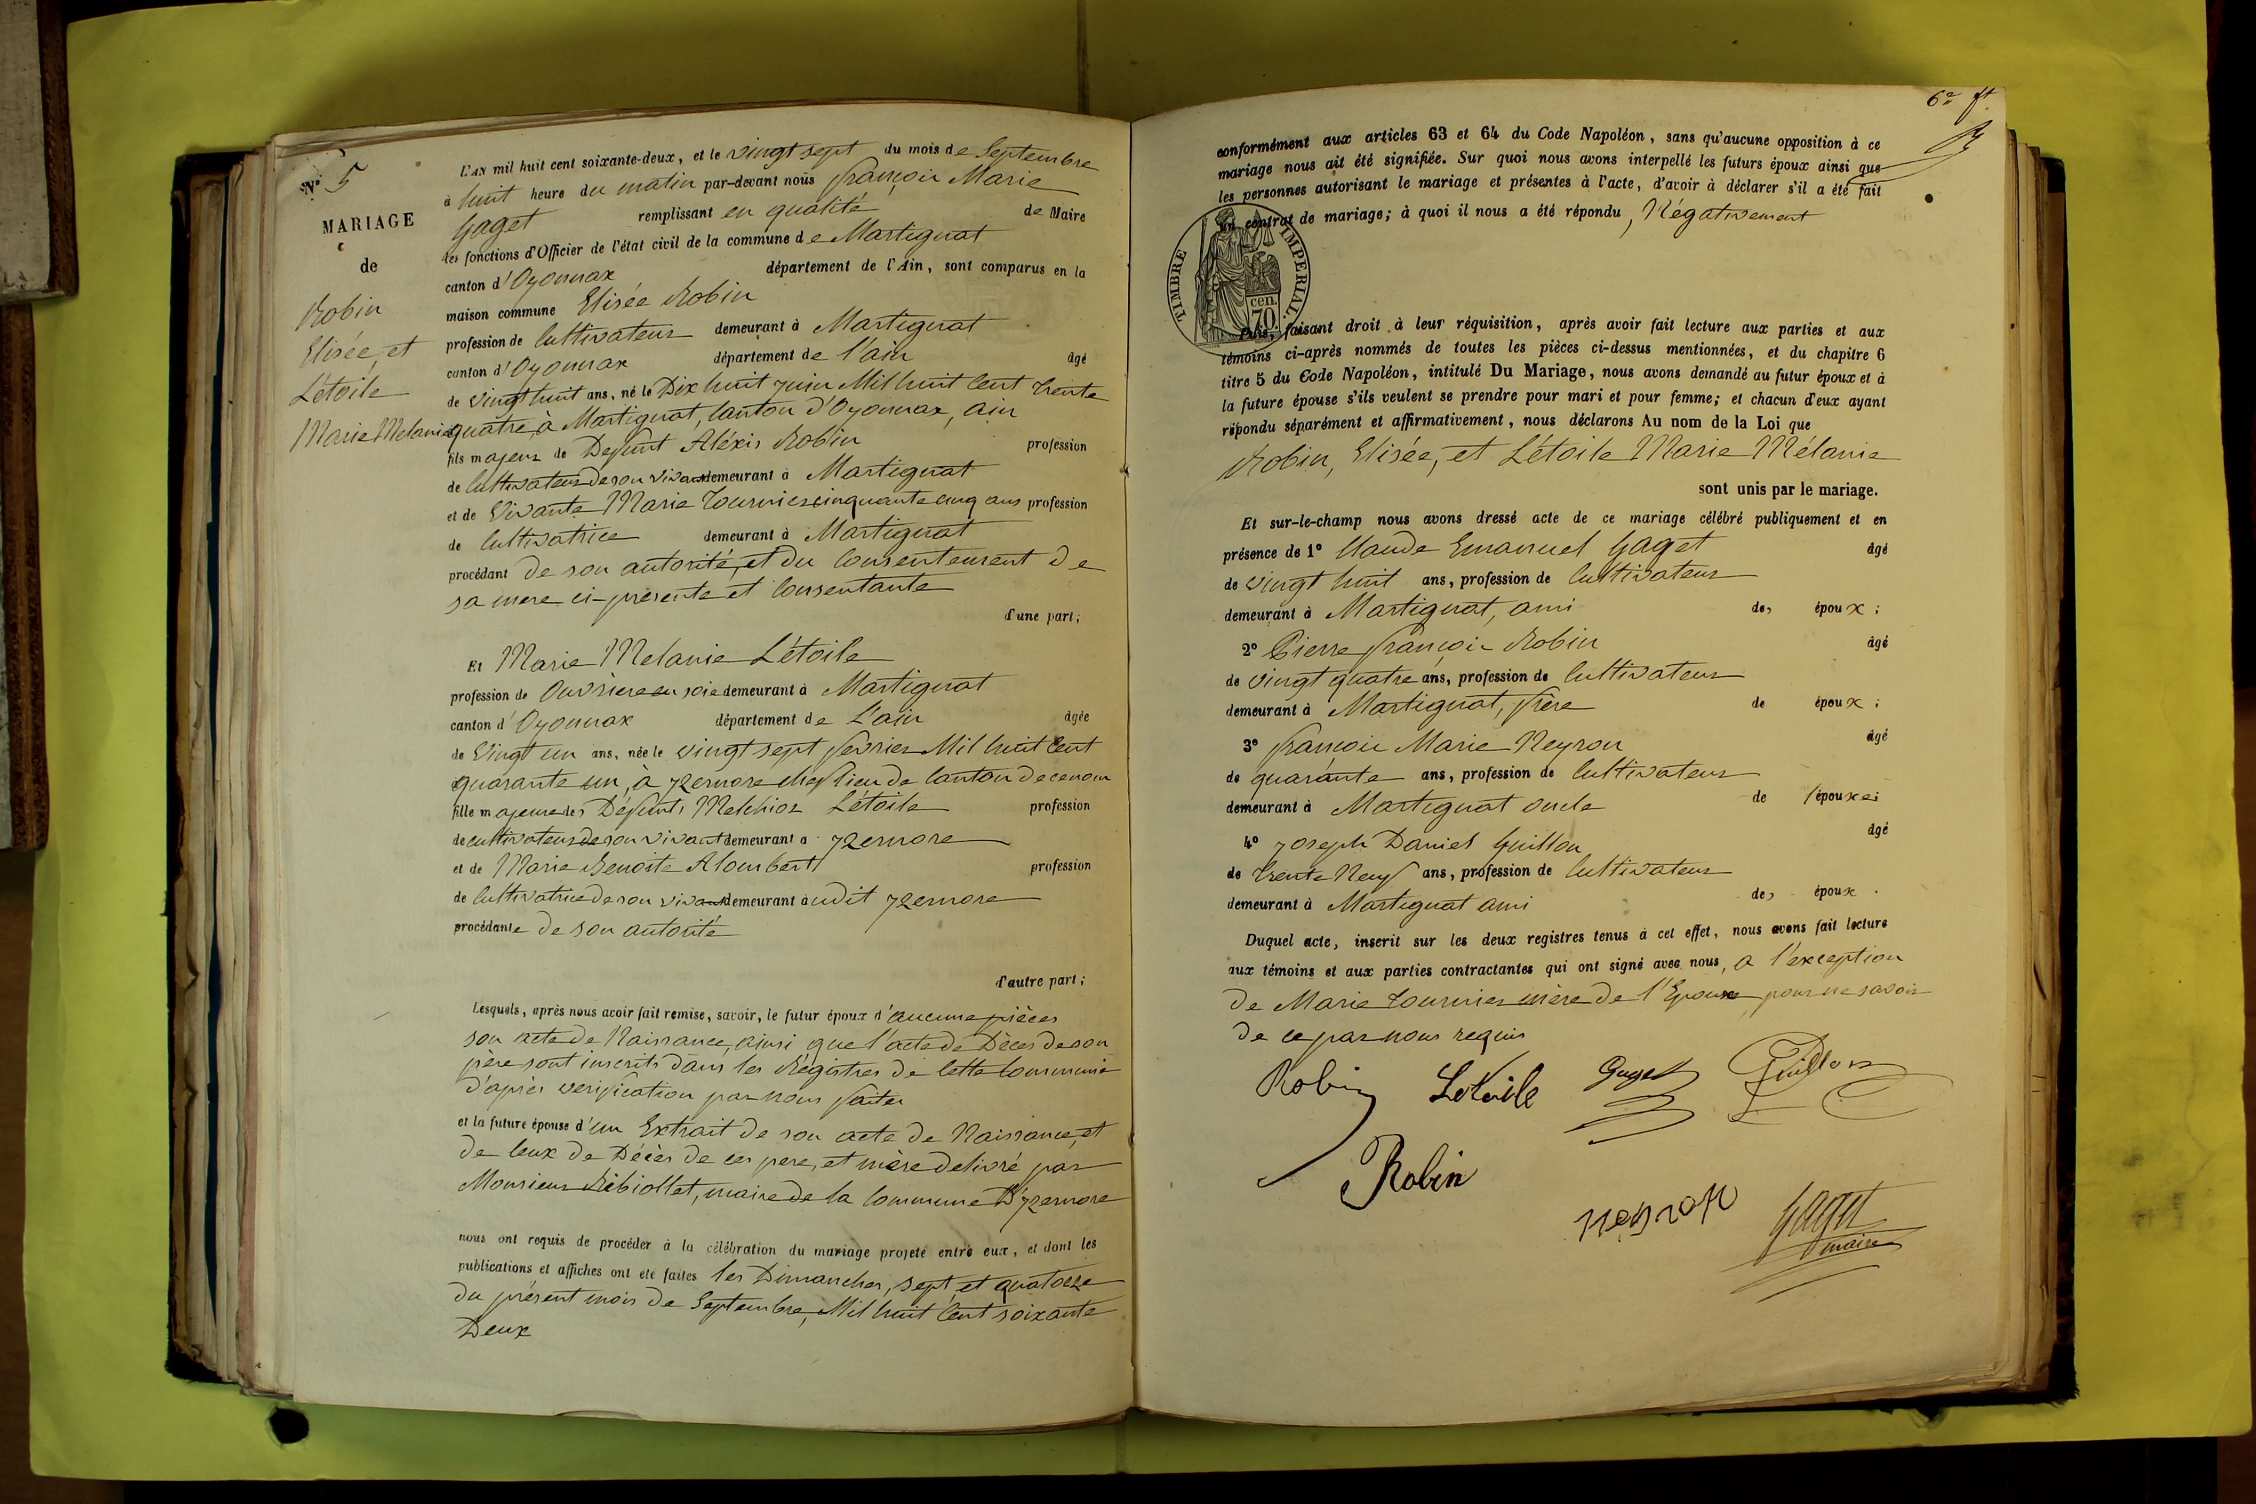 N° 5
MARIAGE
de
Robin
Elisée, et
Létoile
Marie Melanie
L'an mil huit cent soixante-deux, et le vingt sept du mois de Septembre
à huit heure du matin par-devant nous françois Marie
Gaget remplissant en qualité de Maire
les fonctions d'Officier de l'état civil de la commune de Martignat
canton d'Oyonnax département de l'Ain, sont comparus en la
maison commune Elisée Robin
profession de Cultivateur demeurant à Martignat
canton d'Oyonnax département de l'ain âgé
de vingt huit ans, né le Dix huit juin Mil huit Cent trente
quatre, à Martignat, Canton d'Oyonnax, ain
fils majeur de Defunt Aléxis Robin profession
de Cultivateur de son vivant demeurant à Martignat
et de Vivante Marie Tournier cinquante cinq ans profession
de Cultivatrice demeurant à Martignat
procédant de son autorité, et du Consentement de
sa mere ci-présente et Consentante
d'une part;
Et Marie Melanie Létoile
profession de Ouvrière en soie demeurant à Martignat
canton d'Oyonnax département de L'ain âgée
de Vingt un ans, née le vingt sept fevrier Mil huit Cent
quarante un, à yzernore chef lieu de Canton de ce nom
fille majeure des Défunts Melchior Létoile profession
de cultivateur de son vivant demeurant à yzernore
et de Marie Benoite Alombert profession
de Cultivatrice de son vivant demeurant audit yzernore
procédante de son autorité
d'autre part;
Lesquels, après nous avoir fait remise, savoir, le futur époux d'aucune pièces
son acte de Naissance, ainsi que l'acte de Dèces de son
père sont inscrits dans les Régistres de Cette Commune
d'après verification par nous faites
et la future épouse d'un Extrait de son acte de Naissance, et
de Ceux de Décès de ses pere, et mère delivré par
Monsieur Rébiollet, maire de la Commune D'yzernore
nous ont requis de procéder à la célébration du mariage projeté entre eux, et dont les
publications et affiches ont été faites les Dimanches, sept, et quatorze
du présent mois de Septembre, Mil huit Cent soixante
Deux
conformément aux articles 63 et 64 du Code Napoléon, sans qu'aucune opposition à ce
mariage nous ait été signifiée. Sur quoi nous avons interpellé les futurs époux ainsi que
les personnes autorisant le mariage et présentes à l'acte, d'avoir à déclarer s'il a été fait
un contrat de mariage; à quoi il nous a été répondu, Négativement
TIMBRE IMPERIAL.
70 cen.
Puis, faisant droit à leur réquisition, après avoir fait lecture aux parties et aux
témoins ci-après nommés de toutes les pièces ci-dessus mentionnées, et du chapitre 6
titre 5 du Code Napoléon, intitulé Du Mariage, nous avons demandé au futur époux et à
la future épouse s'ils veulent se prendre pour mari et pour femme; et chacun d'eux ayant
répondu séparément et affirmativement, nous déclarons Au nom de la Loi que
Robin, Elisée, et Létoile Marie Mélanie
sont unis par le mariage.
Et sur-le-champ nous avons dressé acte de ce mariage célébré publiquement et en
présence de 1° Claude Emanuel Gaget âgé
de vingt huit ans, profession de Cultivateur
demeurant à Martignat, ami des époux;
2° Pierre françois Robin âgé
de vingt quatre ans, profession de Cultivateur
demeurant à Martignat, frère de époux;
3° françois Marie Neyron âgé
de quarante ans, profession de Cultivateur
demeurant à Martignat oncle de l'épouse;
4° joseph Daniel Guillon âgé
de trente Neuf ans, profession de Cultivateur
demeurant à Martignat ami des époux.
Duquel acte, inscrit sur les deux registres tenus à cet effet, nous avons fait lecture
aux témoins et aux parties contractantes qui ont signé avec nous, a l'exception
de Marie tournier mère de l'Epoux, pour ne savoir
de ce par nous requis
Robin Letoile Gaget Guillon
Robin
neyron
Gaget
maire